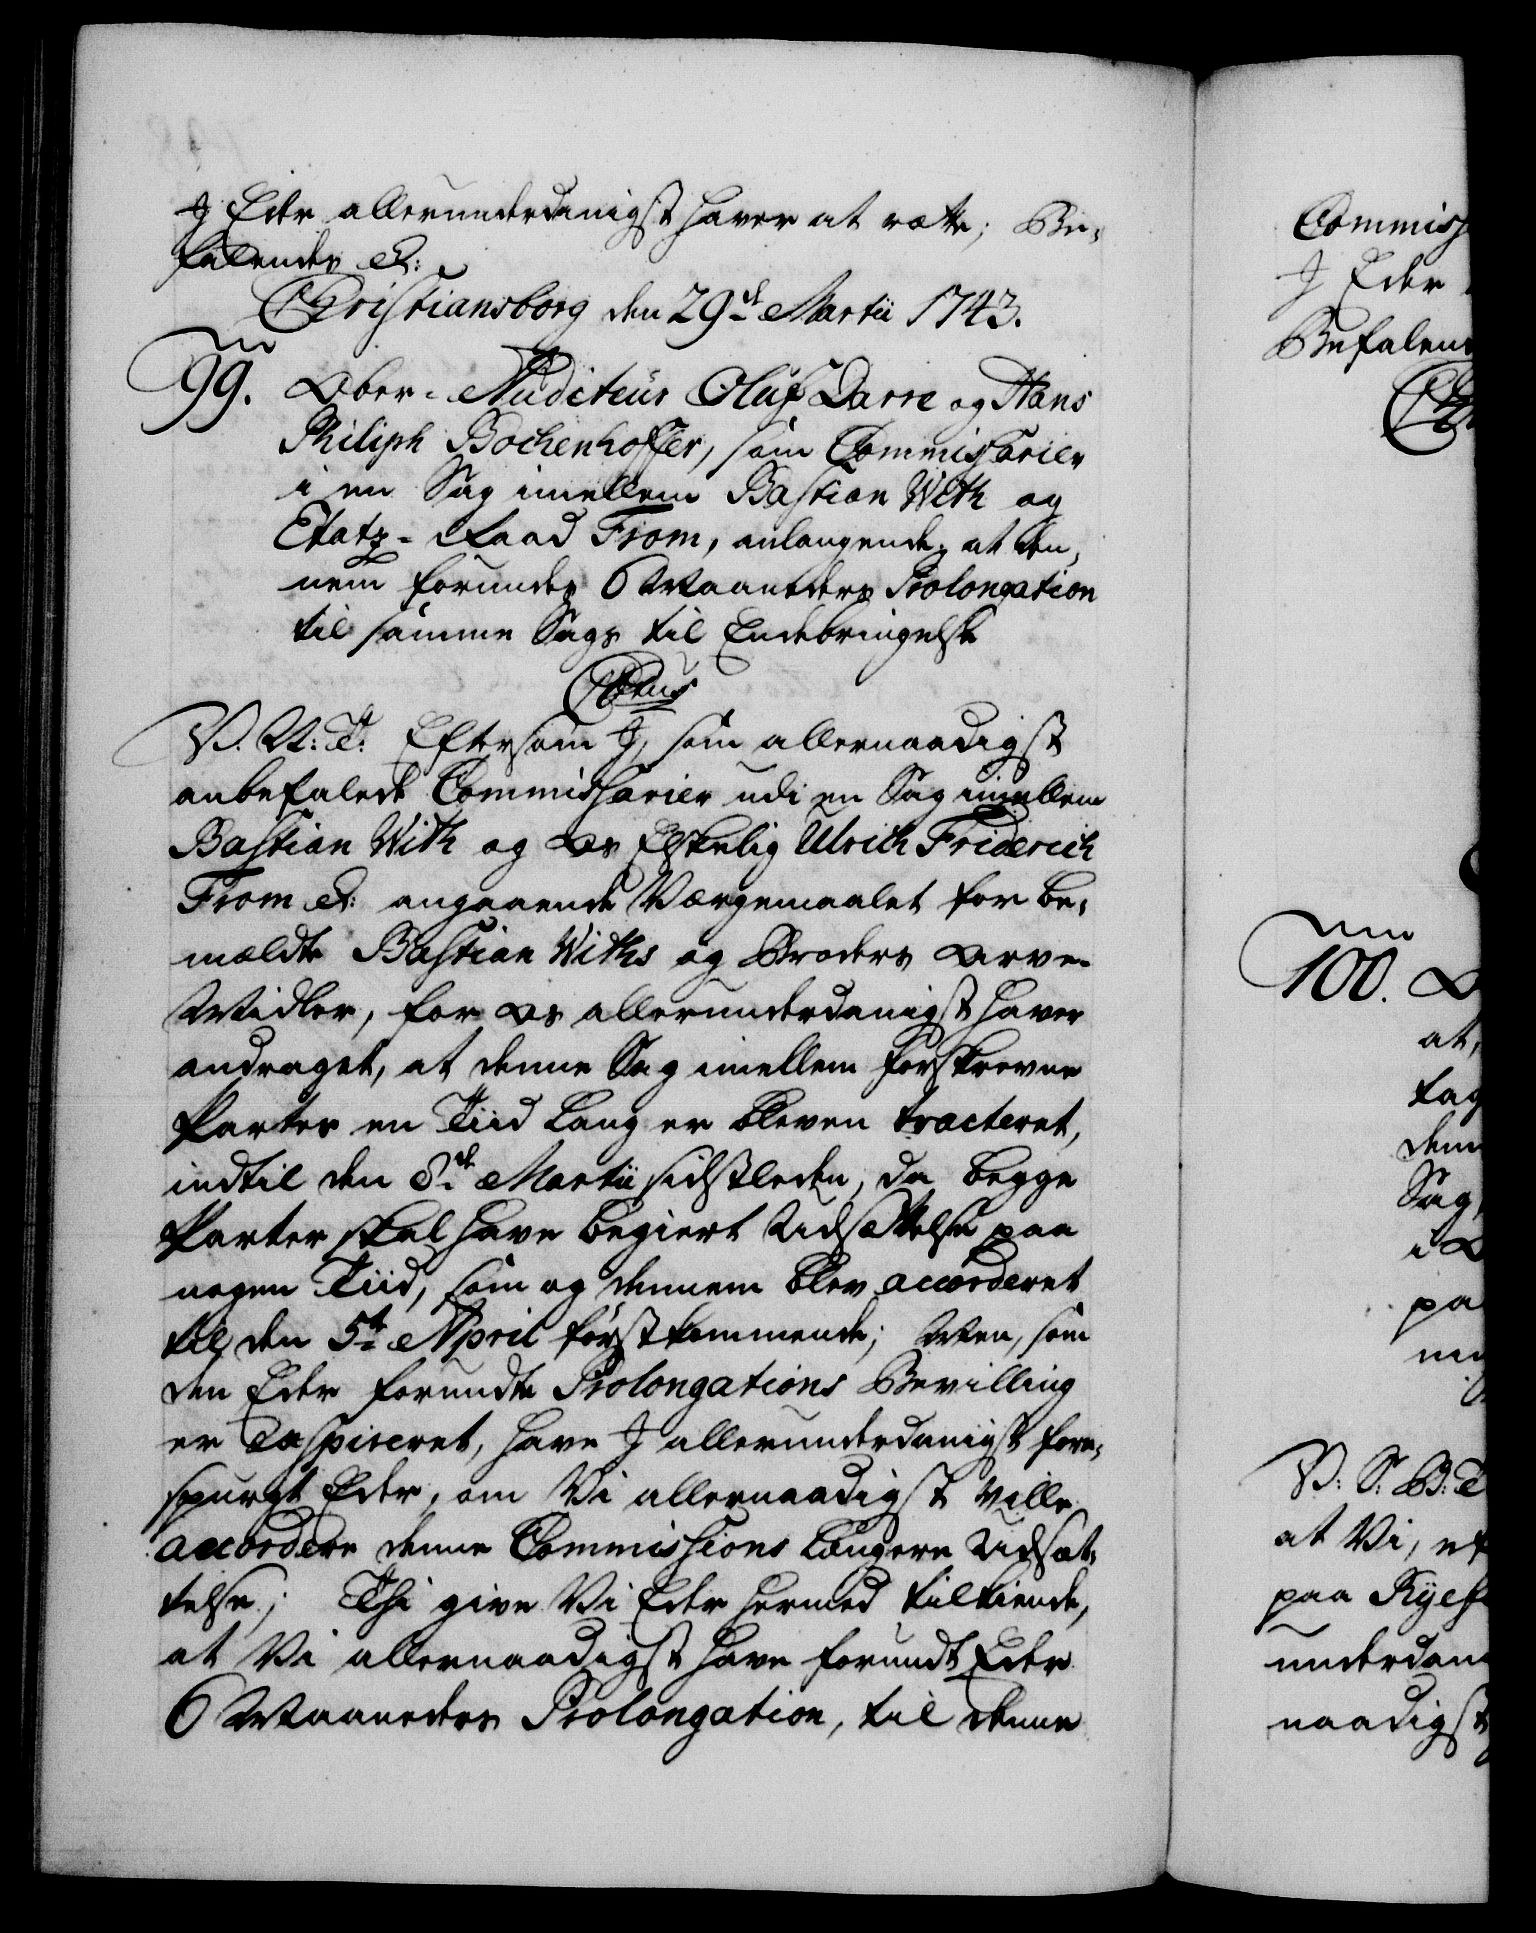 I Eder allerunderdanigst haver at rætte; Be-
falendes &:
Christiansborg den 29de Martii 1743.
No
99. Ober-Auditeur Oluf Darre og Hans
Philiph Bochenhoffer, som Commissarier
i en Sag imellem Bastian With og
Etatz-Raad From, anlangende, at den-
nem forundes 6 Maaneders Prolongation
til samme Sags til Endebringelse
C6tus
V. A: T: Eftersom I, som allernaadigst
anbefalede Commissarier udi en Sag imellem
Bastian With og Os Elskelig Ulrich Friderich
From &: angaaende Værgemaalet for be-
mældte Bastian Withs og Broders Arve-
Midler, for Os allerunderdanigst haver
andraget, at denne Sag imellem forskrevne
Parter en Tiid lang er bleven tracteret,
indtil den 8de Martii sidstleden, da begge
Parter skal have begiert Udsættelse paa
nogen Tiid, som og dennem blev accorderet
til den 5te April førstkommende; Men, som
den Eder forundte Prolongations Bevilling
er Exspireret, have I allerunderdanigst fore-
spurgt Eder, om Vi allernaadigst ville
accordere denne Commissions længere Udsæt-
telse; Thi give Vi Eder hermed tilkiende,
at Vi allernaadigst have forundt Eder
6 Maaneders Prolongation, til denne
Commiss
I Eder
Befalen
No
100. O
at,
tag
dem
Sag,
i O
pa
V: S: B: T
at Vi, ef
paa Ryef
underdan
naadigst